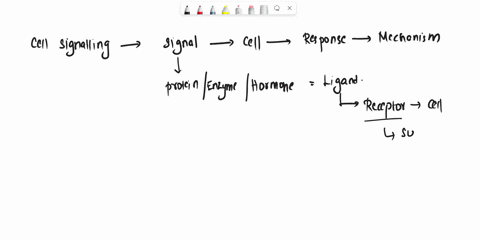 Cell signalling → signal → cell → Response → Mechonism
protein / Enzyme / Hormone = Ligand.
Receptor → cell
su